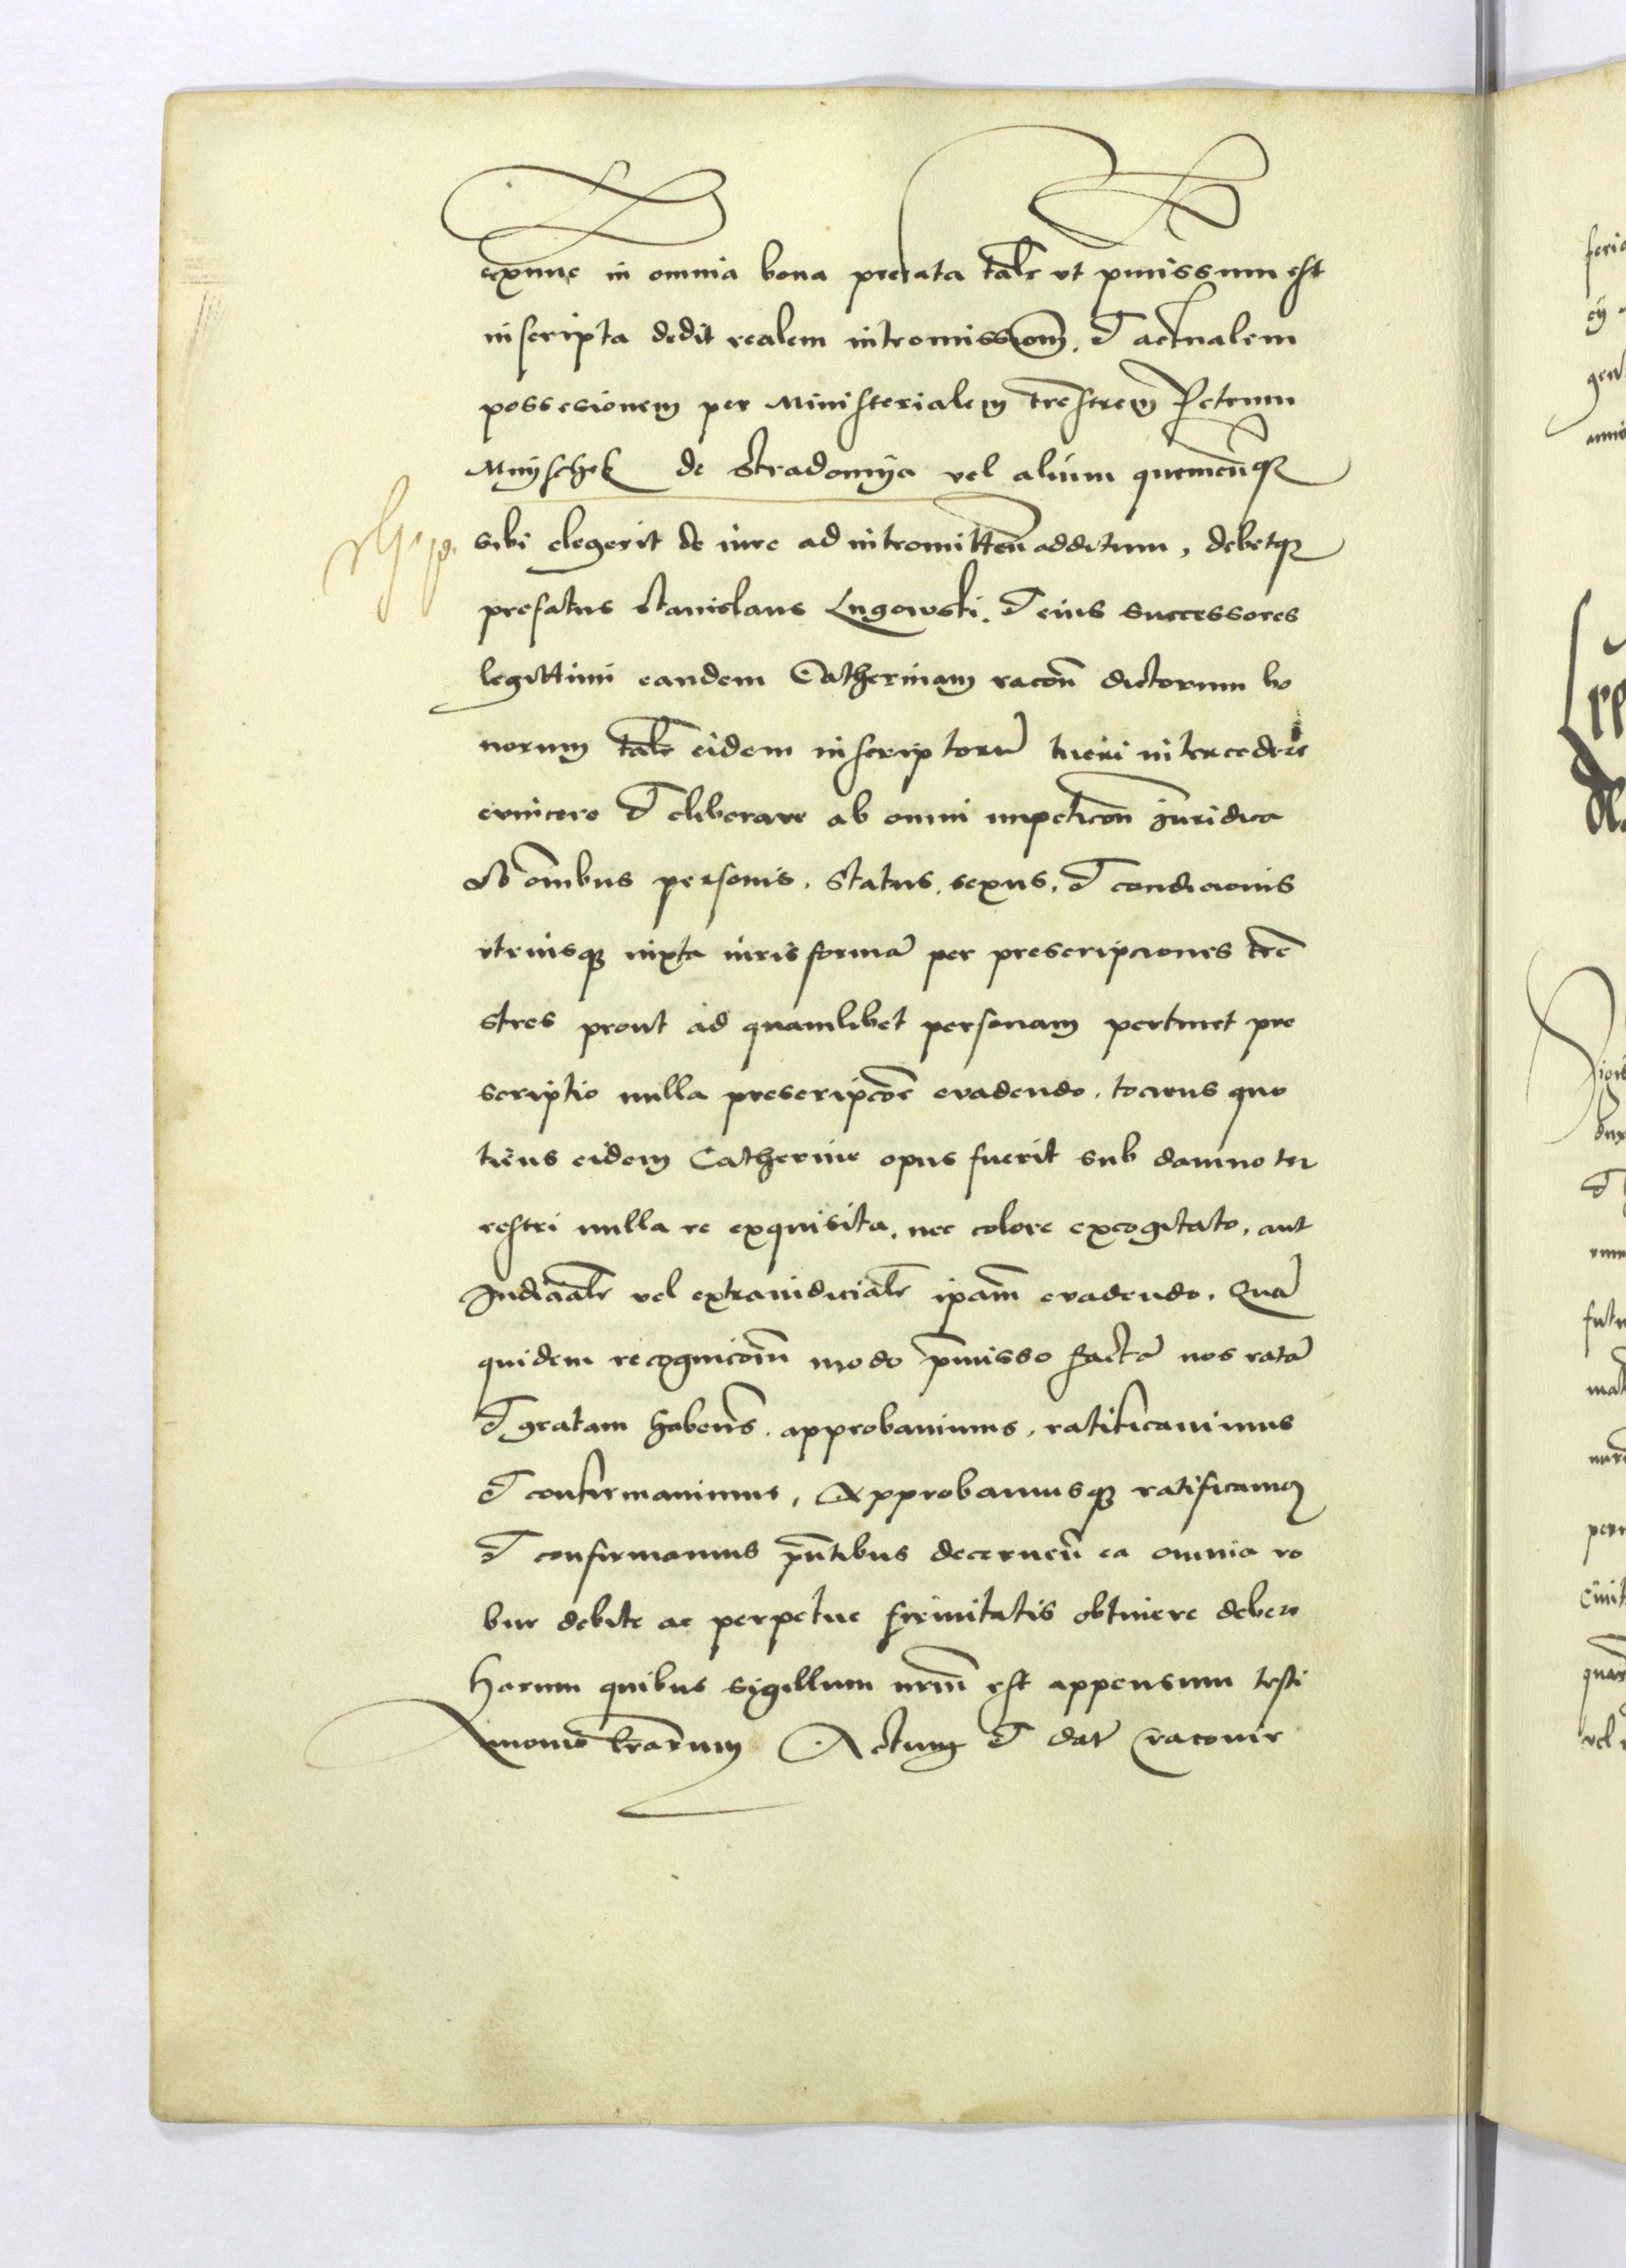 exnunc in omnia bona prefata tale ut pmissum est
inscripta dedit realem intromissiom, et actualem
possesionem per Ministerialem trestrem Petrum
Mnyschek de Stradomya vel alium quemcuq
sibi elegerit de iure ad intromitten additum, debetq
prefatus Stanislaus Lugowski, et eius successores
legittimi eandem Catherinam racon dictorum bo
norum tale eidem inscriptoru tueri intercedere
evincere et eliberare ab omni impeticon Juridica
Ab omibus personis, status, sexus, et condicionis
utriusq iuxta iuris forma per prescripciones tre
stres prout ad quamlibet personam pertinet pre
scriptio nulla prescripcoe evadendo, tociens quo
tiens eidem Catherine opus fuerit sub damno ter
restri nulla re exquisita, nec colore excogitato, aut
Judiciale vel extraiudiciale ipam evadendo. Qua
quidem recognicom modo pmisso facta nos rata
et gratam habens, approbavimus, ratificavimus
et confirmavimus, Approbamusq ratificamus
et confirmamus pntibus decernen ea omnia ro
bur debite ac perpetue firmitatis obtinere debere
Harum quibus sigillum nrm est appensum testi
monio lrarum Actum et dat Cracovie